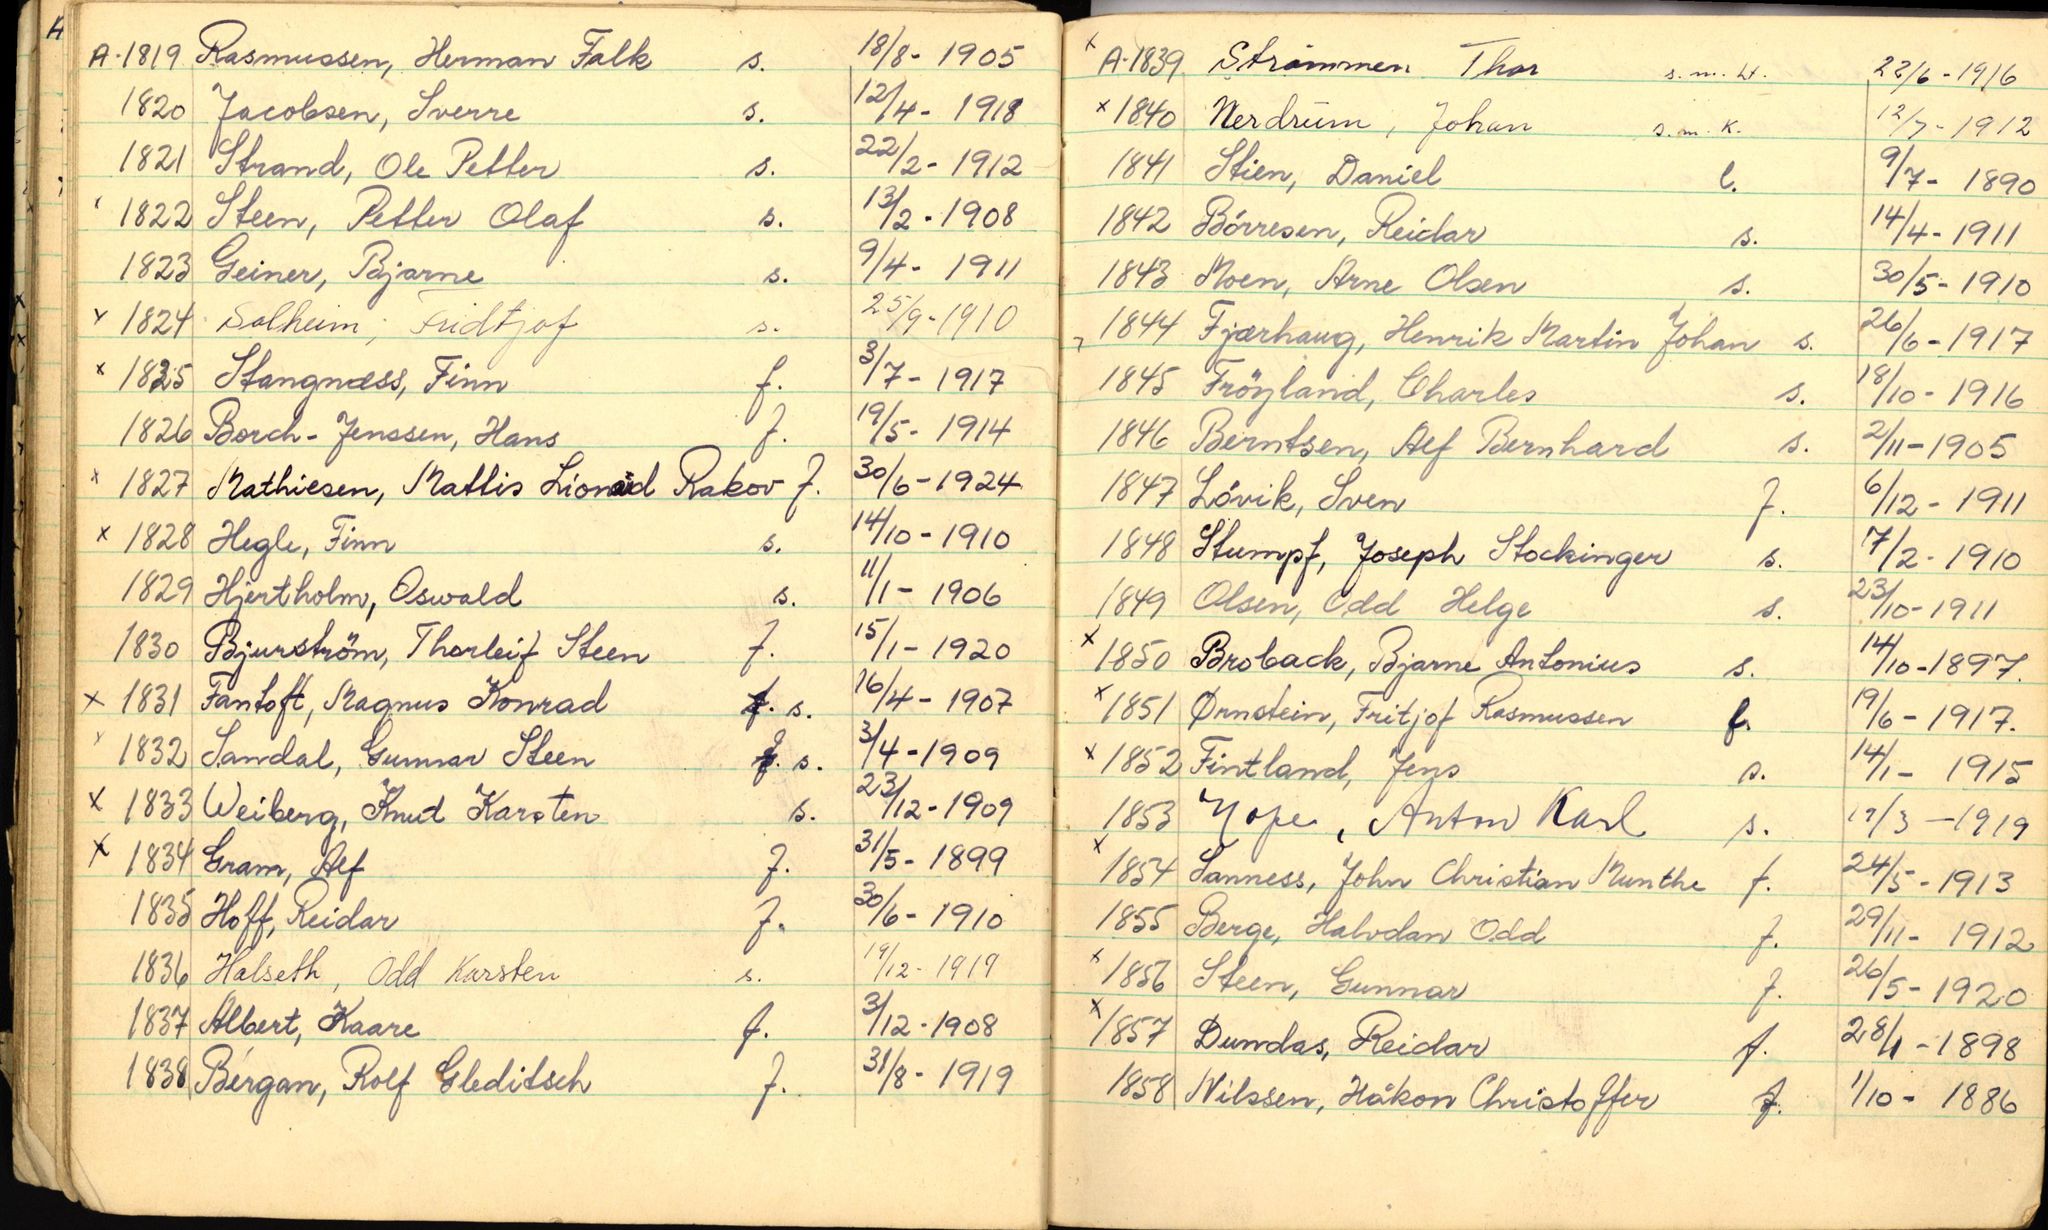 A-1819 Rasmussen, Herman Falk s. 18/8 - 1905
1820 Jacobsen, Sverre s. 12/4 - 1918
1821 Strand, Ole Petter s. 22/2 - 1912
1822 Steen, Petter Olaf s. 13/2 - 1908
1823 Geiner, Bjarne s. 9/4 - 1911
x 1824 Solheim, Fridtjof s. 25/9 - 1910
x 1825 Stangnæss, Finn f. 3/7 - 1917
1826 Borch-Jenssen, Hans f. 19/5 - 1914
x 1827 Mathiesen, Mattis Rakov f. 30/6 - 1924
x 1828 Hegle, Finn s. 14/10 - 1910
1829 Hjertholm, Oswald s. 11/1 - 1906
1830 Bjurström, Thorleif Steen f. 15/1 - 1920
x 1831 Fantoft, Magnus Konrad s. 16/4 - 1907
x 1832 Sandal, Gunnar Steen s. 3/4 - 1909
x 1833 Weiberg, Knud Karsten s. 23/12 - 1909
x 1834 Gram, Alf f. 31/5 - 1899
1835 Hoff, Reidar f. 30/6 - 1910
1836 Halseth, Odd Karsten s. 19/12 - 1919
1837 Albert, Kaare f. 3/12 - 1908
1838 Bergan, Rolf Gleditsch f. 31/8 - 1919
x A-1839 Strømmen Thor 1916
x 1840 Nerdrum, Johan s.m.k. 12/7 - 1912
1841 Stien, Daniel l. 9/7 - 1890
1842 Börresen, Reidar s. 14/4 - 1911
1843 Moen, Arne Olsen s. 30/5 - 1910
1844 Fjærhaug, Henrik Martin Johan s. 26/6 - 1917
1845 Fröyland, Charles s. 18/10 - 1916
1846 Berntsen, Alf Bernhard s. 2/11 - 1905
1847 Lövik, Sven f. 6/12 - 1911
1848 Stumpf, Joseph Stockinger s. 7/2 - 1910
1849 Olsen, Odd Helge s. 23/10 - 1911
x 1850 Broback, Bjarne Antonius s. 14/10 - 1897.
x 1851 Ørnstein, Fritjof Rasmussen f. 19/6 - 1917.
x 1852 Fintland, Jens s. 14/1 - 1915
1853 Nope, Anton Karl s. 1919
x 1854 Sanness, John Christian Munthe f. 24/5 - 1913
1855 Berge, Halvdan Odd f. 29/11 - 1912
x 1856 Steen, Gunnar f. 26/5 - 1920
x 1857 Dundas, Reidar f. 1898
1858 Nilssen, Håkon Christoffer f. 1/10 - 1886